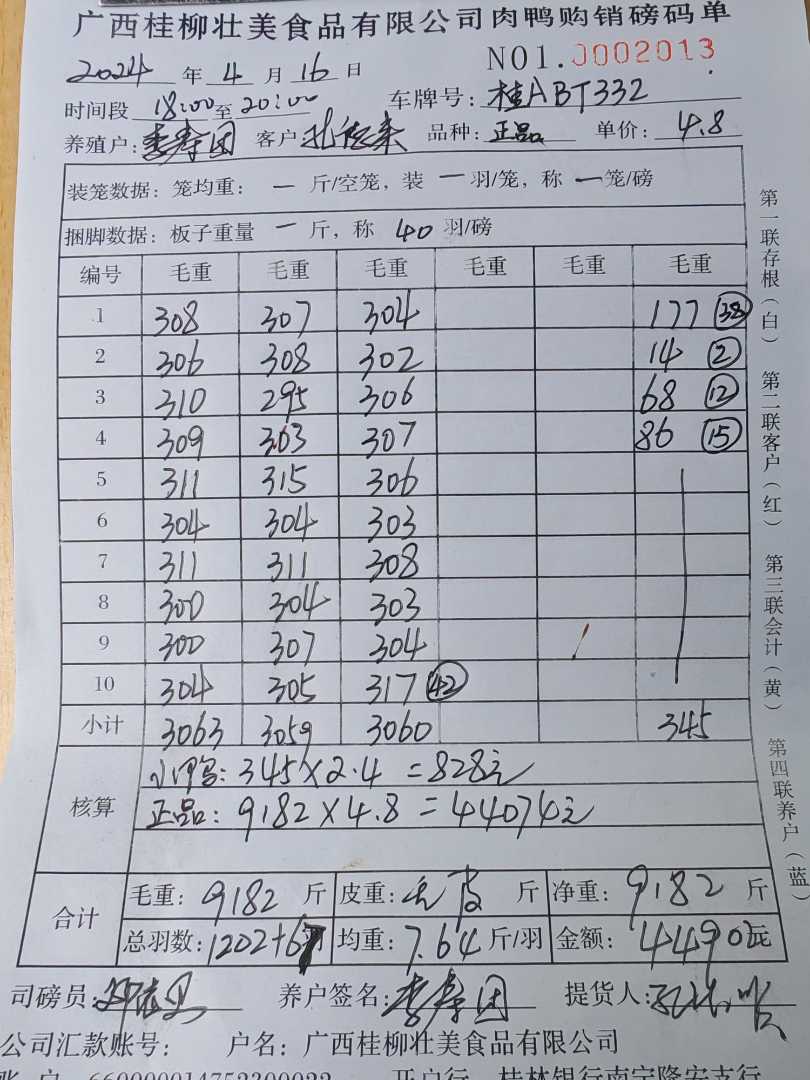 广西桂柳壮美食品有限公司肉鸭购销磅码单
NO1.0002013
2024 年 4 月 16 日
时间段 18:00 至 20:00 车牌号: 桂ABT332
养殖户: 李寿团 客户: 品种: 正品 单价: 4.8
装笼数据: 笼均重: 一 斤/空笼, 装 一 羽/笼, 称 一 笼/磅
捆脚数据: 板子重量 一 斤, 称 40 羽/磅
编号 毛重 毛重 毛重 毛重 毛重 毛重
1 308 307 304 177 38
2 306 308 302 14 2
3 310 295 306 68 12
4 309 303 307 86 15
5 311 315 306
6 304 304 303
7 311 311 308
8 300 304 303
9 300 307 304
10 304 305 317 42
小计 3063 3059 3060 345
核算
345×2.4=828元
正品: 9182×4.8=44074元
合计
毛重: 9182 斤 皮重: 毛皮 斤 净重: 9182 斤
总羽数: 1202+67 均重: 7.64 斤/羽 金额: 44902元
司磅员: 养户签名: 李寿团 提货人:
公司汇款账号: 户名: 广西桂柳壮美食品有限公司
账 户 660000014752300022 开户行 桂林银行南宁隆安支行
第一联存根(白)
第二联客户(红)
第三联会计(黄)
第四联养户(蓝)